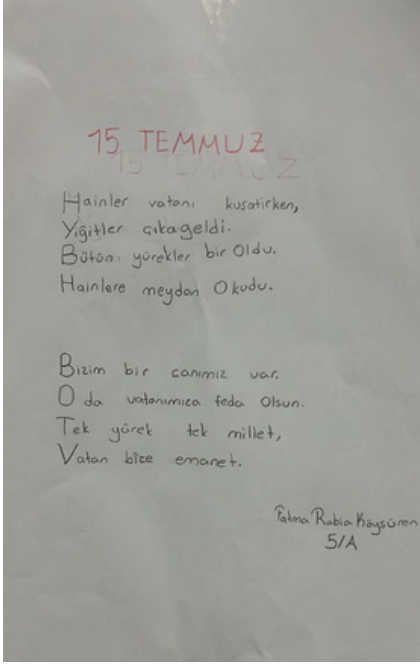 15 TEMMUZ
Hainler vatanı kuşatırken,
Yiğitler çıkageldi.
Bütün yürekler bir Oldu.
Hainlere meydan Okudu.
Bizim bir canımız var.
O da vatanımıza feda Olsun.
Tek yürek tek millet,
Vatan bize emanet.
Fatma Rabia Köysüren
5/A